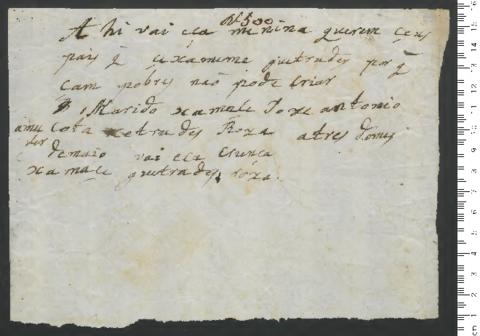 Nº 500
A hi vai esa menina querem ceus
pais q̃ cexameme gutrudes por q̃
cam pobres não pode criar
O Marido xamace Joze antonio
amu cota xotrudes Roza a tres domes
demaio vai esa crianca
xamace gutrudes roza.